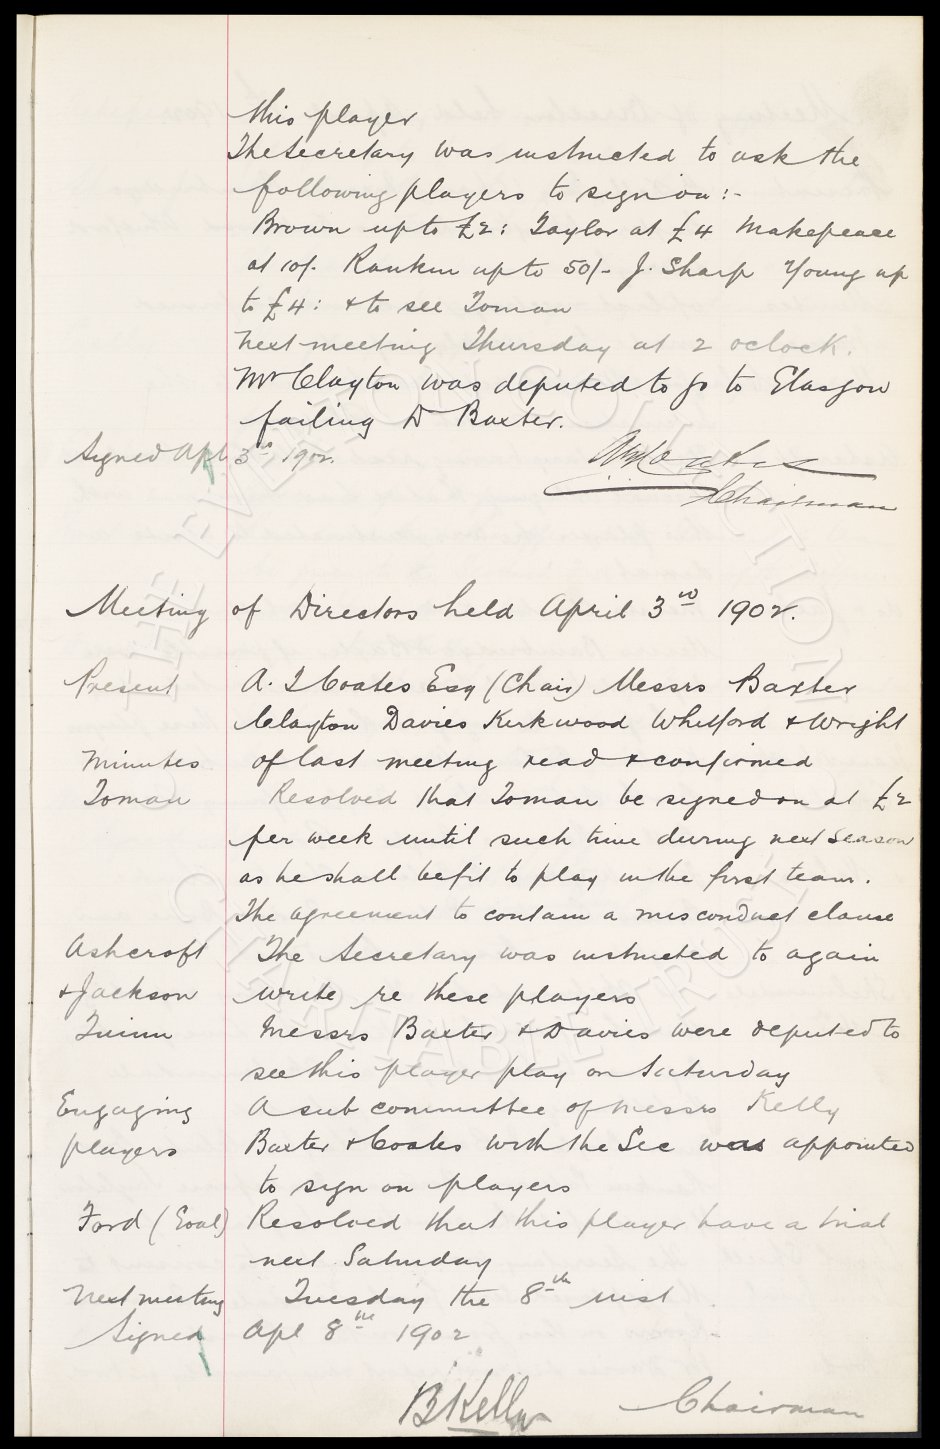 this player
The Secretary was instructed to ask the
following players to sign on :-
Brown up to £2 : Taylor at £4 Makepeace
at 10/- Rankin up to 50/- J. Sharp Young up
to £4 : & to see Toman
Next meeting Thursday at 2 oclock.
Mr Clayton was deputed to go to Glasgow
failing Dr Baxter.
Signed Apl 3rd 1902.
Chairman
Meeting of Directors held April 3rd 1902.
Present A. T Coates Esq (Chair) Messrs Baxter
Clayton Davies Kirkwood Whitford & Wright
Minutes of last meeting read & confirmed
Toman Resolved that Toman be signed on at £2
per week until such time during next Season
as he shall be fit to play in the first team.
The agreement to contain a misconduct clause
Ashcroft The Secretary was instructed to again
& Jackson write re these players
Quinn Messrs Baxter & Davies were deputed to
see this player play on Saturday
Engaging A sub committee of Messrs Kelly
players Baxter & Coates with the Sec was appointed
to sign on players
Ford (Goal) Resolved that this player have a trial
next Saturday
Next meeting Tuesday the 8th inst.
Signed Apl 8th 1902
B Kelly Chairman
THE EVERTON COLLECTION
CHARITABLE TRUST